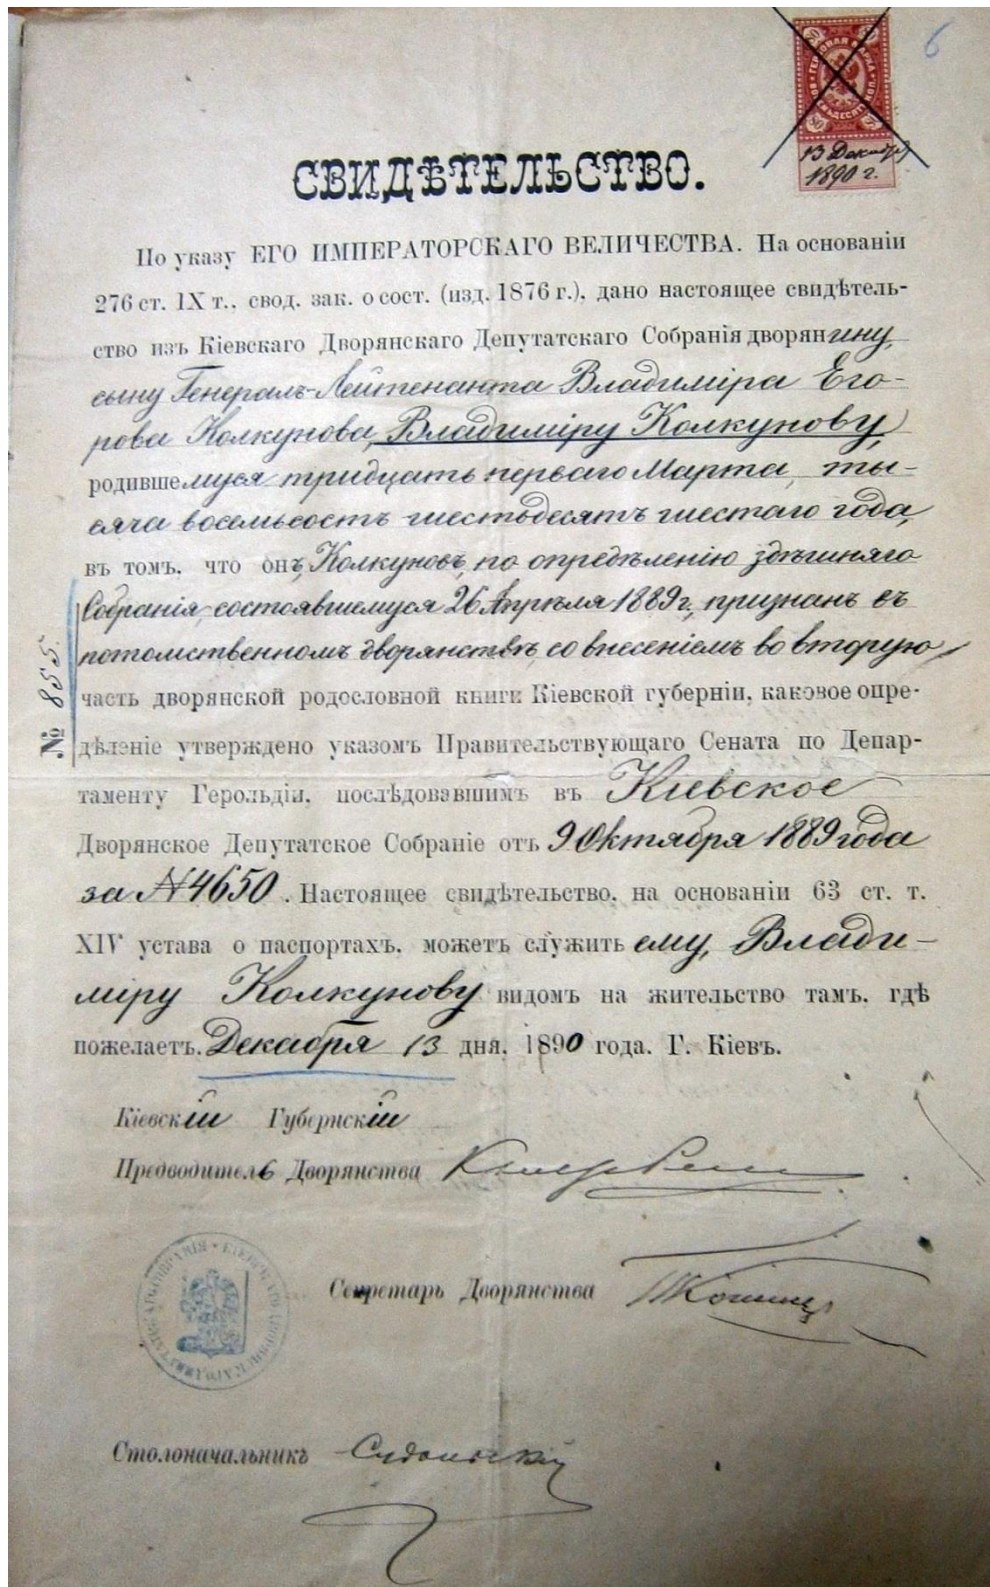 6
80 80
ГЕРБОВАЯ МАРКА
80 80
13 Декабря
1890 г.
СВИДѢТЕЛЬСТВО.
По указу ЕГО ИМПЕРАТОРСКАГО ВЕЛИЧЕСТВА. На основаніи
276 ст. IX т., свод. зак. о сост. (изд. 1876 г.), дано настоящее свидѣтель-
ство изъ Кіевскаго Дворянскаго Депутатскаго Собранія дворянину,
сыну Генералъ-Лейтенанта Владиміра Его-
рова Колкунова, Владиміру Колкунову,
родившемуся тридцать перваго Марта, ты-
сяча восемьсотъ шестьдесятъ шестаго года,
въ томъ, что онъ, Колкуновъ, по опредѣленію здѣшняго
Собранія, состоявшемуся 26 Апрѣля 1889 г., признанъ въ
потомственномъ дворянствѣ, со внесеніемъ во вторую
часть дворянской родословной книги Кіевской губерніи, каковое опре-
дѣленіе утверждено указомъ Правительствующаго Сената по Депар-
таменту Герольдіи, послѣдовавшимъ въ Кіевское
Дворянское Депутатское Собраніе отъ 9 Октября 1889 года
за № 4650. Настоящее свидѣтельство, на основаніи 63 ст. т.
XIV устава о паспортахъ, можетъ служить ему, Влади-
міру Колкунову видомъ на жительство тамъ, гдѣ
пожелаетъ. Декабря 13 дня, 1890 года. Г. Кіевъ.
№ 855.
Кіевскій Губернскій
Предводитель Дворянства
Секретарь Дворянства
Столоначальникъ